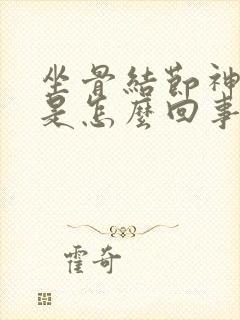 坐骨結節神
是怎麼回事
霍奇